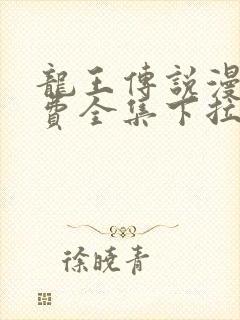 龍王傳說漫
費全集下拉
徐曉青